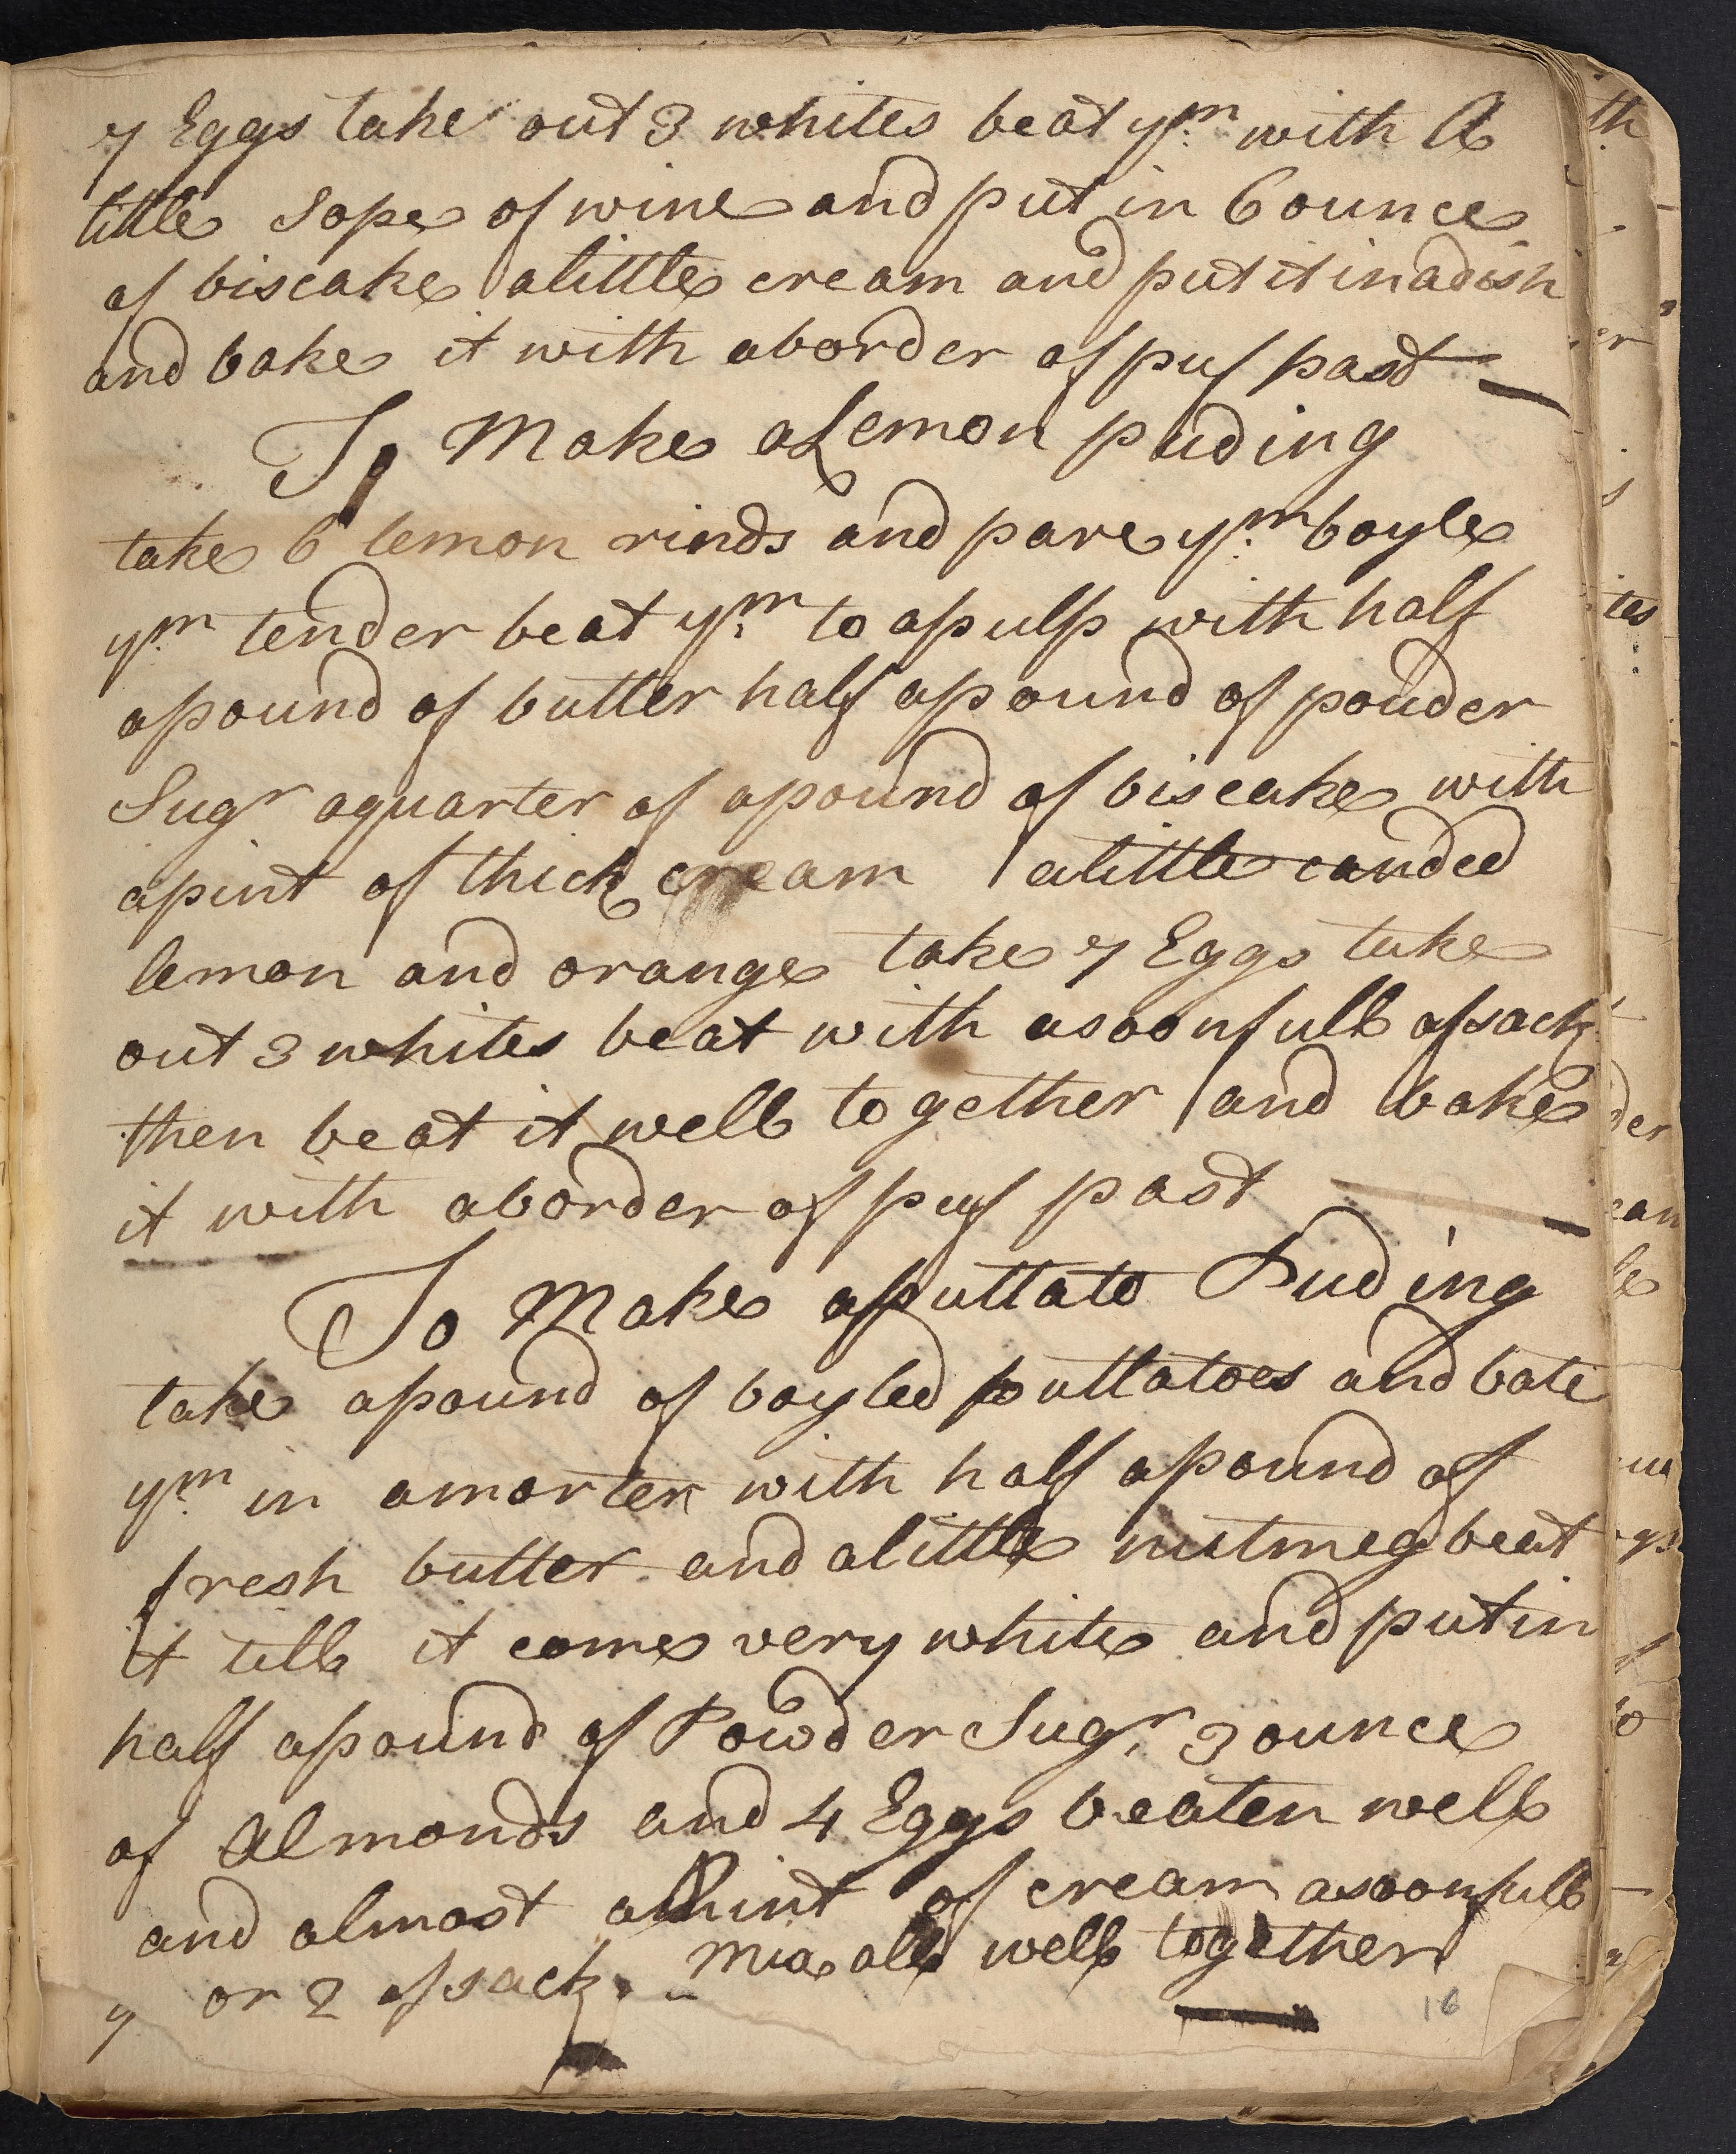 7 Eggs take out 3 whites beat ym with A
little Sope of wine and put in 6 ounce
of biscake alittle cream and put it in adish
and bake it with aborder of puf past
To Make aLemon puding
take 6 lemon rinds and pare ym boyle
ym tender beat ym to apulp with half
apound of butter half apound of pouder
Sugr aquarter of apound of biscake with
apint of thick cream alittle canded
lemon and orange take 7 Eggs take
out 3 whites beat with asoonfull of sack
then beat it well together and bake
it with aborder of puf past
To Make aputtato Puding
take apound of boyled puttatoes and bate
ym in amorter with half apound of
fresh butter and alittle nutmeg beat
it till it come very white and put in
half apound of Powder Sugr 3 ounce
of Almonds and 4 Eggs beaten well
and almost apint of cream asoonfull
or 2 of sack Mix all well together
16